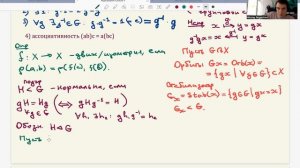 3) ∀g ∃g⁻¹
4) ассоциативность (ab)c = a(bc)
Опр
f: X → X - движ/изометрия, если
ρ(a,b) = ρ(f(a), f(b)).
H < G - нормальна, если
gH = Hg (⇔ gHg⁻¹ = H)
∀g ∈ G
Обозн H ◁ G
Пусть
x ↦ gx
g⁻¹gx = x
Пусть G ↷ X
Орбиты Gx = Orb(x) =
= {gx | ∀g ∈ G} ⊂ X
Стабилизатор
Gx = Stab(x) = {g ∈ G | gx = x}
Gx < G.